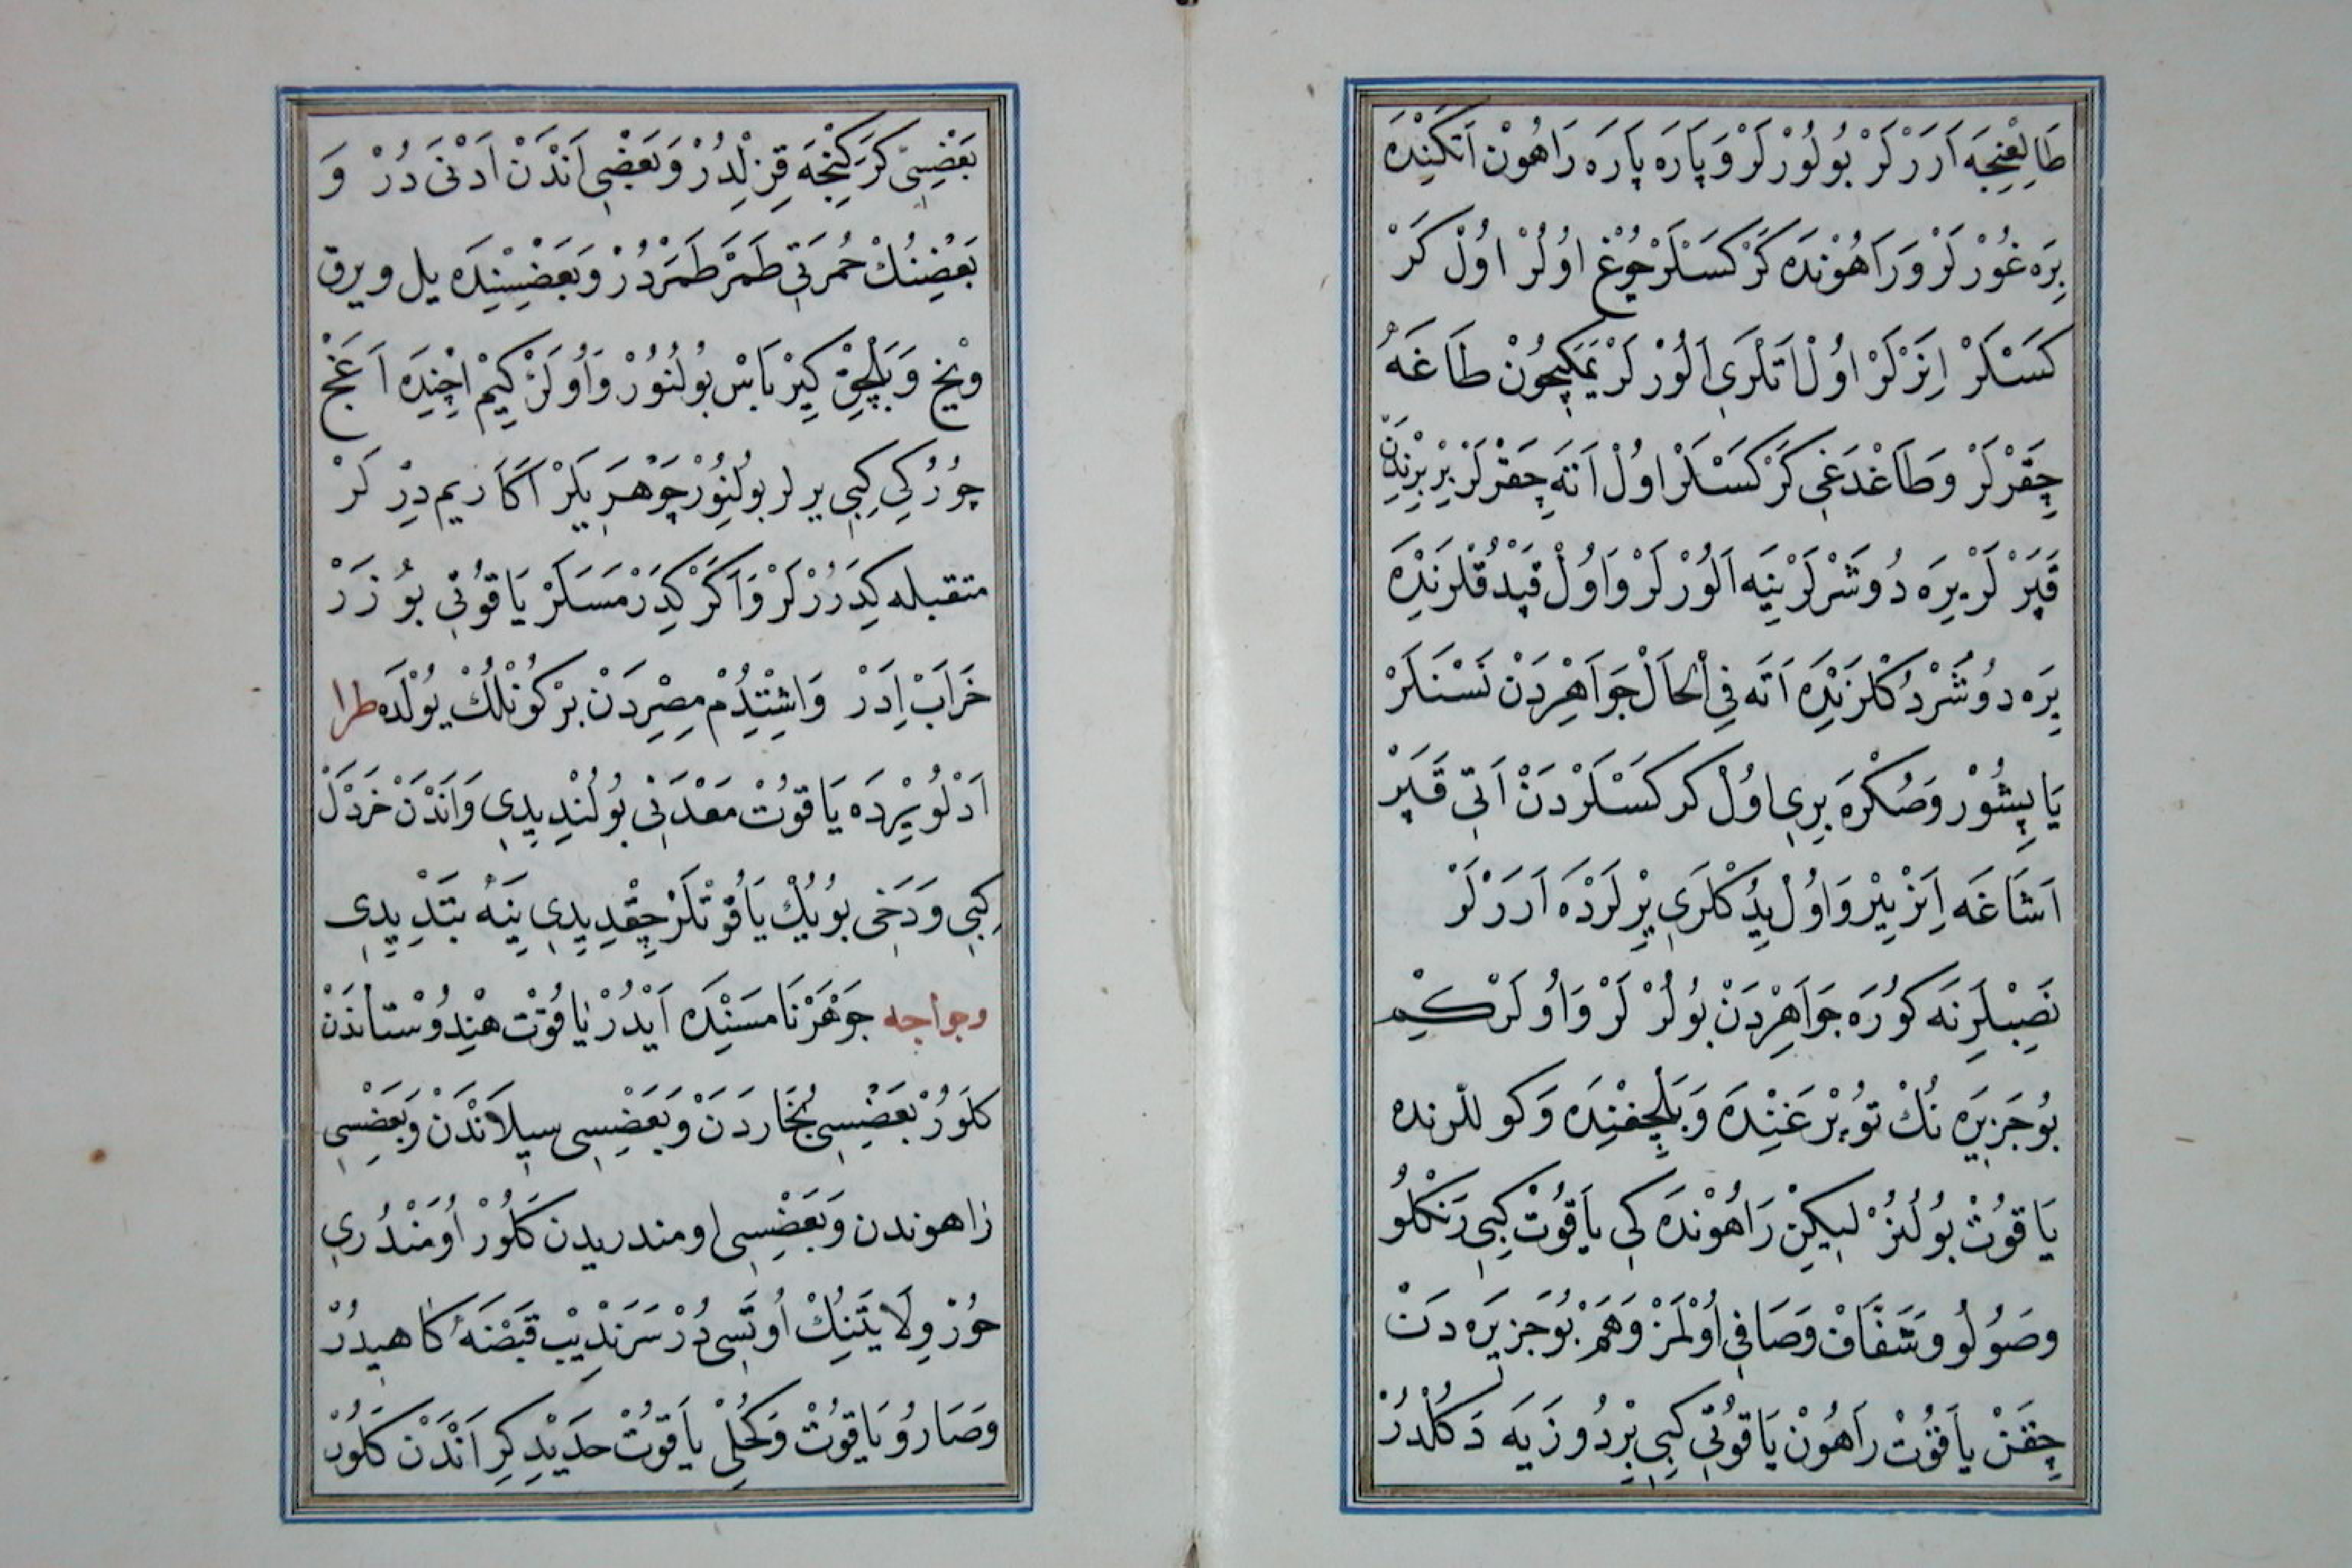 طَالِعْنِجَه اَرَرْلَرْ بُولُورْلَرْ وَپَارَه پَارَه رَاهُونْ اَتَكِنْدَه
يِرَه غُورْلَرْ وَرَاهُونْدَه كَرْكَسْلَرْ چُوغْ اوُلُرْ اوُلْ كَرْ
كَسْلَرْ اِنَرْلَرْ اوُلْ اَتْلَرِى اَلُورْلَرْ يَمَكِچُونْ طَاغَه
چِقَرْلَرْ وَطَاغْدَغِى كَرْكَسْلَرْ اوُلْ اَتَه چِقَرْلَرْ بِرْ بِرِنْدَنْ
قَپَرْلَرْ يِرَه دُوشَرْلَرْ يِنَه اَلُورْلَرْ وَاوُلْ قَپْدُقْلَرِنْدَه
يِرَه دوُشَرْدُكْلَرِنْدَه اَتَه فِى الْحَالْ جَوَاهِرْدَنْ نَسْنَلَرْ
يَاپِشُورْ وَصُكْرَه بِرِى اوُلْ كركَسْلَرْدَنْ اَتِى قَپَرْ
اَشَاغَه اِنَزْ يِيْر وَاوُلْ يِيدُكْلَرِى يِرْلَرْدَه اَرَرْلَرْ
نَصِبْلَرِنَه كوُرَه جَوَاهِرْدَنْ بُولُرْلَرْ وَاوُلَرْكِيم
بُو جَزِيرَه نُكْ تُوپْرَغِنْدَه وَبَلْچِغِنْدَه وَكوللرنده
يَاقُوتْ بُولُنُرْ لِيكِنْ رَاهُونْدَه كِى يَاقُوتْ كِبِى رَنْكْلُو
وصُولُو وَشَفَّافْ وَصَافِى اوُلْمَزْ وَهَمْ بُوجَزِيرَه دَنْ
چِقَنْ يَاقُوتْ رَاهُونْ يَاقُوتِى كِبِى يِرْدُوزَيَه دَكُلْدُرْ
بَعْضِسِى كَرَكِنْجَه قِزِلْدِرْ وَبَعْضِى اَنْدَنْ اَدْنَى دُرْ وَ
بَعْضِنُكْ حُمرَتِى طَمَرْ طَمَرْدُرْ وَبَعْضِسِنْدَه يل ويرق
وَيخْ وَبَلْچِقْ كِيرْ پَاسْ بُولُنُورْ وَاُولَرْكِيمْ اِچِنْدَه اَغَجْ
چُورُكِى كِبِى يرلر بُولُنُورْ جَوْهَرِيلَرْ اَكَا ريم دِرْلَرْ
متقبله كِدَرُرْلَرْ وَاَكَرْ كِدَرْمَسَلَرْ يَاقُوتِى بُوزَرْ
خَرَابْ اِدَرْ وَاشِتِدُمْ مِصِرْدَنْ بِرْ كُونْلُكْ يُولْدَه طرا
اَدْلُو يِرْدَه يَاقُوتْ مَعْدَنِى بُولُنْدِيدِى وَاَنْدَنْ خَرْدَلْ
كِبِى وَدَخِى بُويُكْ يَاقُوتْلَرْ چِقْدِيدِى يِنَه بَتْدِيدِى
وجواجه جَوْهَرْنَامَسِنْدَه اَيْدُرْ يَاقُوتْ هِنْدُوسْتَانْدَنْ
كَلُورْ بَعْضِيسِى بُخَارَدَنْ وَبَعْضِيسِى سِيلَانْدَنْ وَبَعْضِسِى
زاهوندن وَبَعْضِيسِى اومندريدن كَلُورْ اُومَنْدُرِى
حُورْ وِلَايَتِنِكْ اُوتَسِى دُرْ سَرَنْدِيبْ قَبْضَنَه كَاهِيدُرْ
وَصَارُو يَاقُوتْ وَكُحْلِى يَاقُوتْ حَدِيدِ كِرْ اَنْدَنْ كَلُورْ